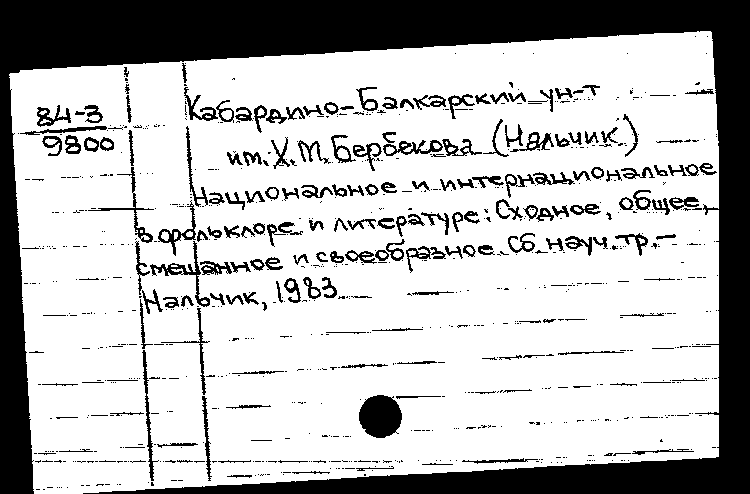 84-3
9800
Кабардино-Балкарский ун-т
им. Х.М. Бербекова (Нальчик)
Национальное и интернациональное
в фольклоре и литературе: Сходное, общее,
смешанное и своеобразное. Сб. науч. тр. –
Нальчик, 1983